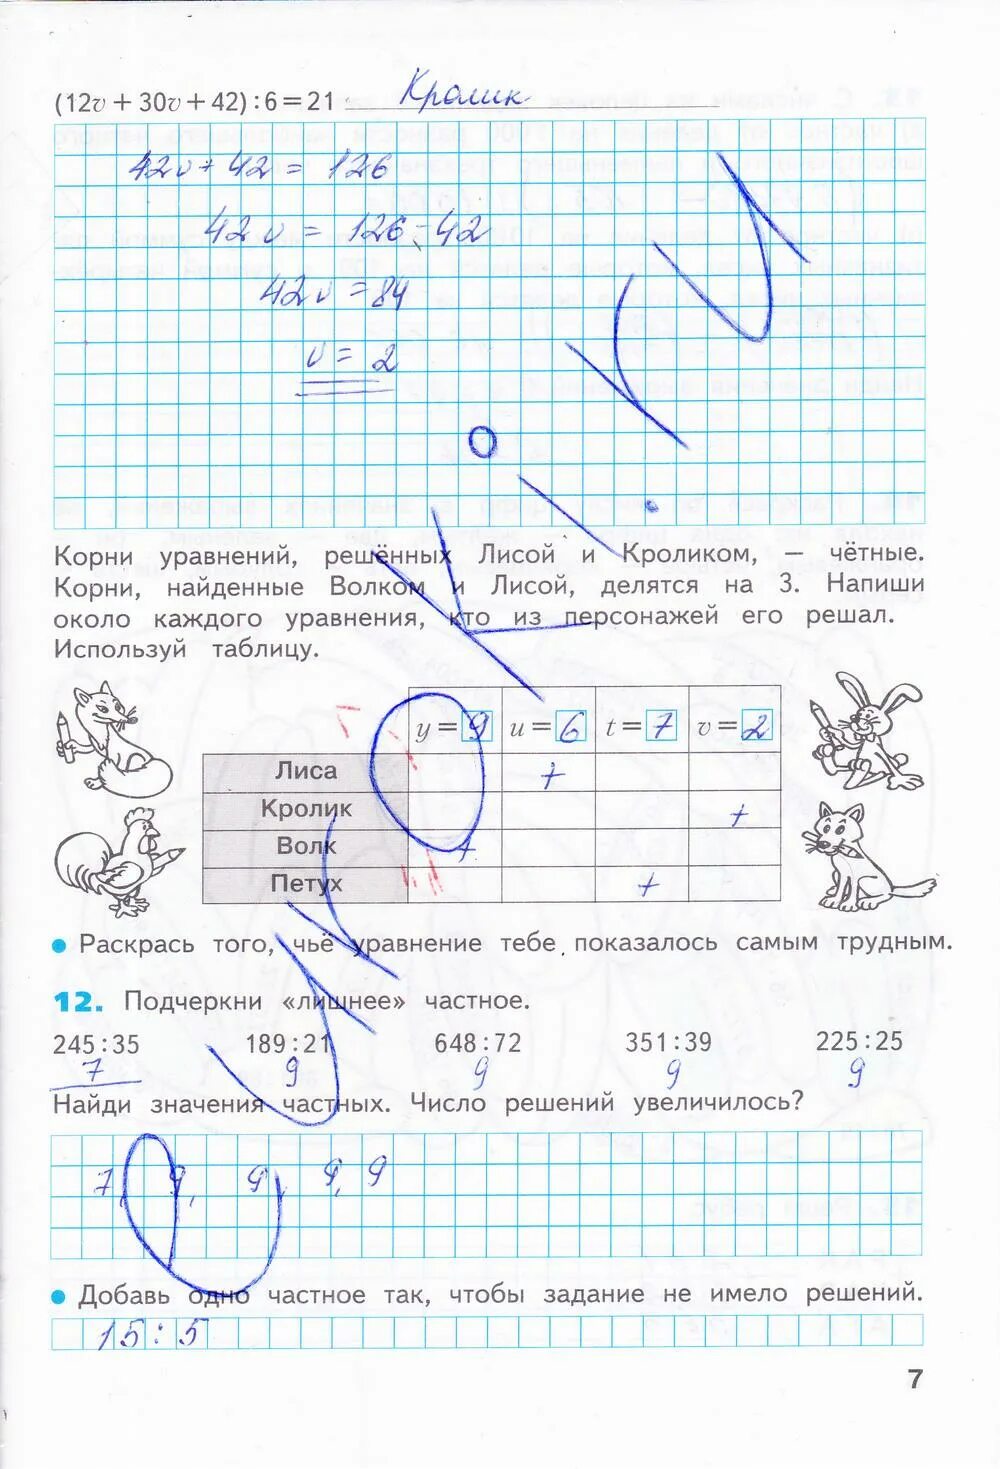 (12v + 30v + 42) : 6 = 21 Кролик
42v + 42 = 126
42v = 126 - 42
42v = 84
v = 2
Корни уравнений, решённых Лисой и Кроликом, — чётные.
Корни, найденные Волком и Лисой, делятся на 3. Напиши
около каждого уравнения, кто из персонажей его решал.
Используй таблицу.
y = 9 u = 6 t = 7 v = 2
Лиса +
Кролик +
Волк +
Петух +
• Раскрась того, чьё уравнение тебе показалось самым трудным.
12. Подчеркни «лишнее» частное.
245 : 35 189 : 21 648 : 72 351 : 39 225 : 25
7 9 9 9 9
Найди значения частных. Число решений увеличилось?
7, 9, 9, 9, 9
• Добавь одно частное так, чтобы задание не имело решений.
15 : 5
7